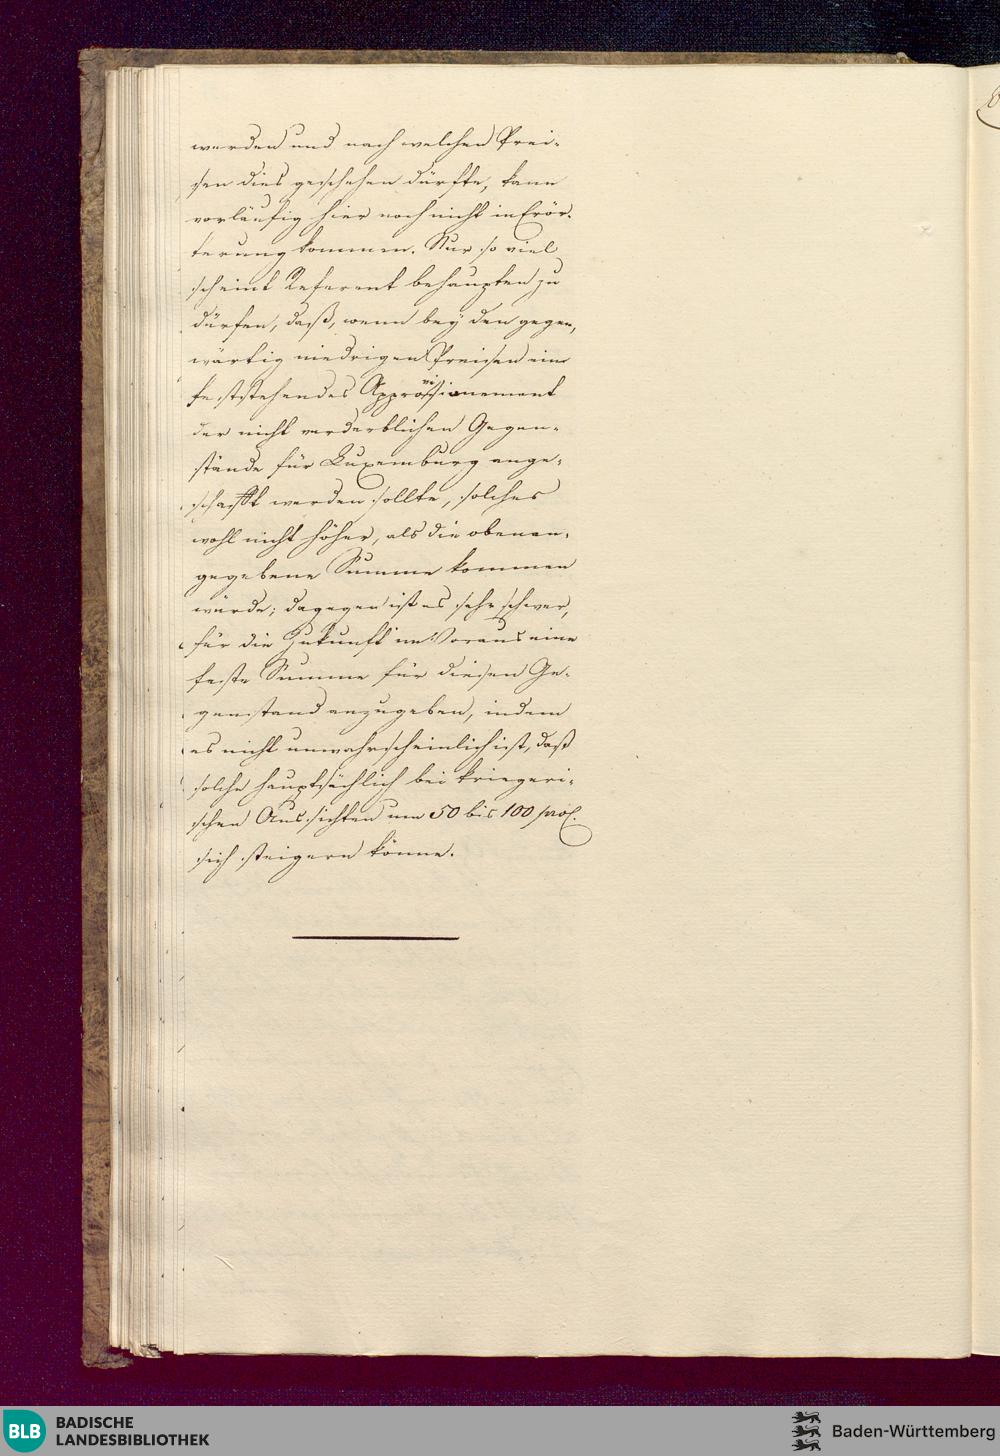 werden und nach welchen Prei-
sen dies geschehen dürfte, kann
vorläufig hier noch nicht in Erör-
terung kommen. Nur so viel
scheint Referent behaupten zu
dürfen, daß, wenn bey den gegen-
wärtig niedrigen Preisen ein
feststehendes Approvisionement
der nicht verderblichen Gegen-
stände für Luxemburg ange-
schafft werden sollte, solches
wohl nicht höher, als die obenan-
gegebene Summe kommen
würde; dagegen ist es sehr schwer,
für die Zukunft im Voraus eine
feste Summe für diesen Ge-
genstand anzugeben, indem
es nicht unwahrscheinlich ist, daß
solche hauptsächlich bei kriegeri-
schen Aussichten um 50 bis 100 proC.
sich steigern könne.
BLB
BADISCHE
LANDESBIBLIOTHEK
Baden-Württemberg